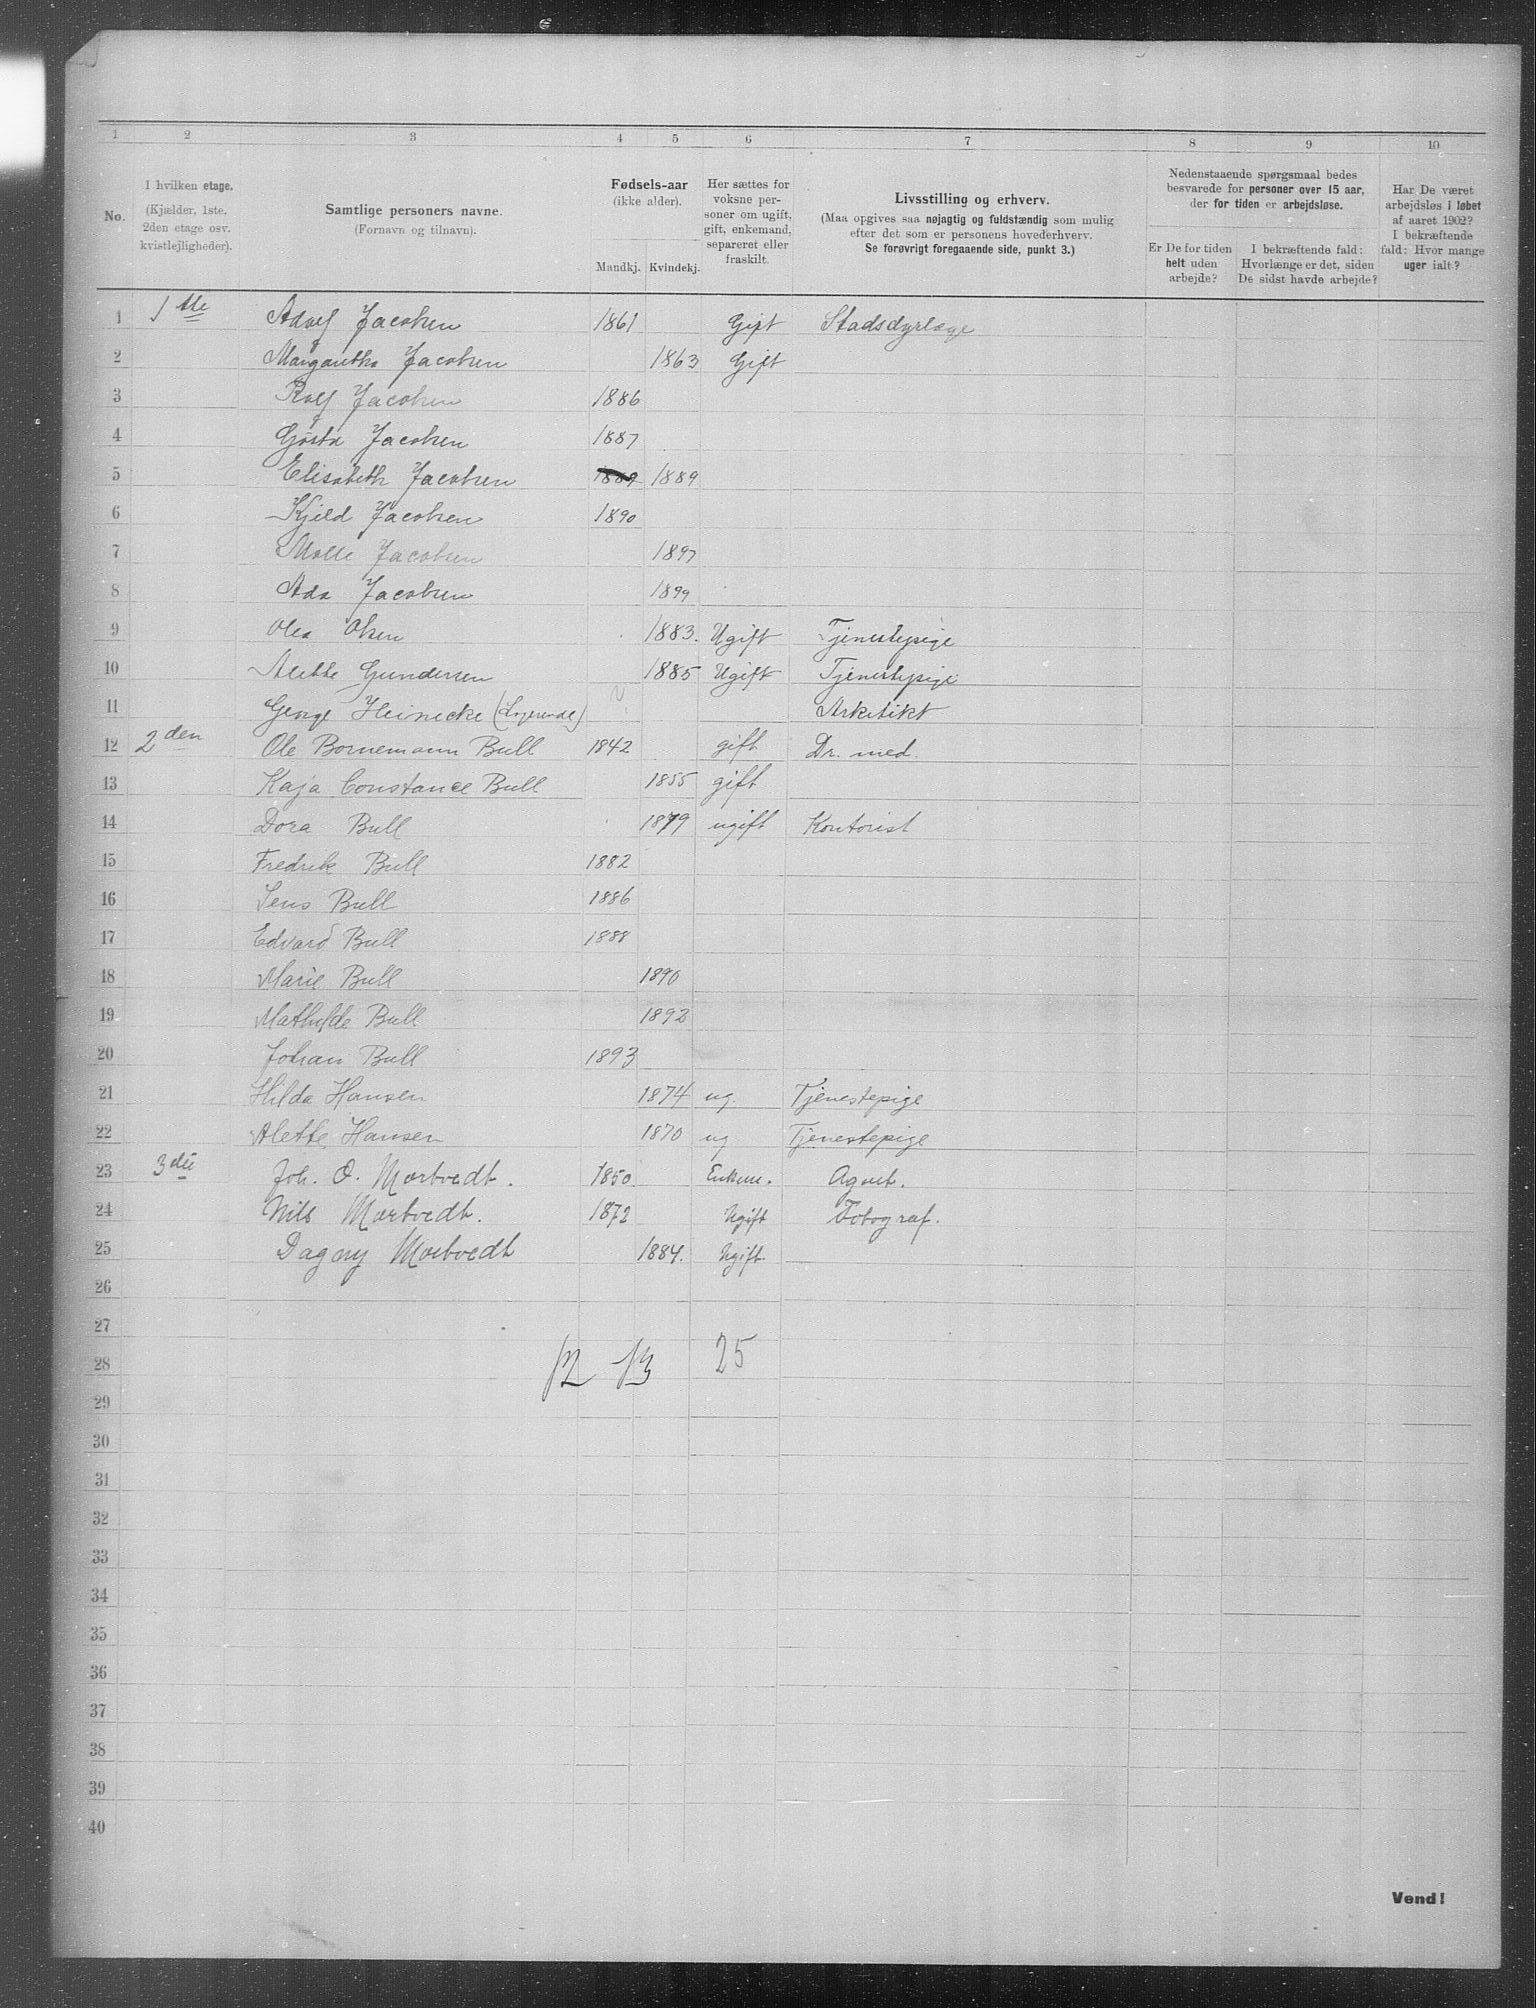 1 2 3 4 5 6 7 8 9 10
No.
I hvilken etage.
(Kjælder, 1ste,
2den etage osv.
kvistlejligheder).
Samtlige personers navne.
(Fornavn og tilnavn).
Fødsels-aar
(ikke alder).
Mandkj. Kvindekj.
Her sættes for
voksne per-
soner om ugift,
gift, enkemand,
separeret eller
fraskilt.
Livsstilling og erhverv.
(Maa opgives saa nøjagtig og fuldstændig som mulig
efter det som er personens hovederhverv.
Se forøvrigt foregaaende side, punkt 3.)
Nedenstaaende spørgsmaal bedes
besvarede for personer over 15 aar,
der for tiden er arbejdsløse.
Er De for tiden
helt uden
arbejde?
I bekræftende fald:
Hvorlænge er det, siden
De sidst havde arbejde?
Har De været
arbejdsløs i løbet
af aaret 1902?
I bekræftende
fald: Hvor mange
uger ialt?
1 1ste Adolf Jacobsen 1861 Gift Stadsdyrlæge
2 Margaretha Jacobsen 1863 Gift
3 Rolf Jacobsen 1886
4 Gösta Jacobsen 1887
5 Elisabeth Jacobsen 1889 1889
6 Kjeld Jacobsen 1890
7 Molle Jacobsen 1897
8 Ada Jacobsen 1899
9 Olea Olsen 1883. Ugift Tjenestepige
10 Alette Gundersen 1885 Ugift Tjenestepige
11 George Heinecke (Logerende) Arkitekt
12 2den Ole Bornemann Bull 1842 gift Dr. med.
13 Kaja Constance Bull 1855 gift
14 Dora Bull 1879 ugift Kontorist
15 Fredrik Bull 1882
16 Jens Bull 1886
17 Edvard Bull 1888
18 Marie Bull 1890
19 Mathilde Bull 1892
20 Johan Bull 1893
21 Hilda Hansen 1874 ug. Tjenestepige
22 Alette Hansen 1870 ug Tjenestepige
23 3die Joh. O. Mørtvedt. 1850 Enkem. Agent.
24 Nils Mørtvedt. 1872 Ugift Fotograf.
25 Dagny Mørtvedt 1884. Ugift
26
27
28 12 13 25
29
30
31
32
33
34
35
36
37
38
39
40
Vend!